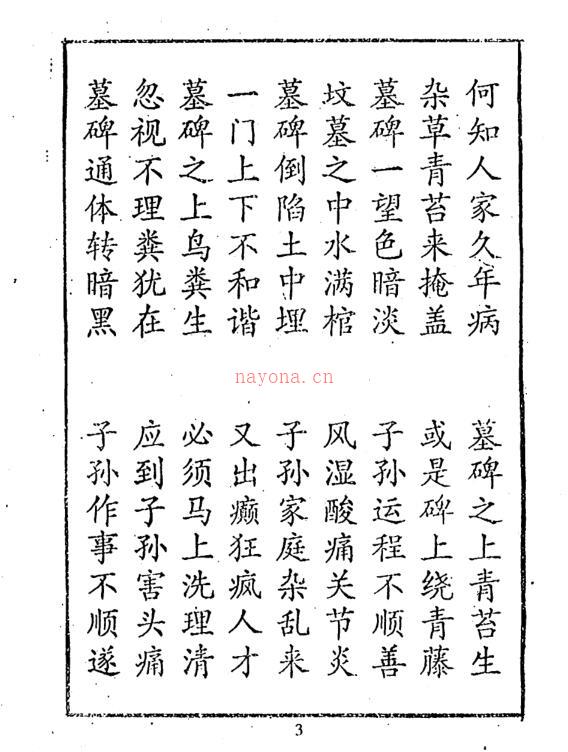 何知人家久年病
墓碑之上青苔生
杂草青苔来掩盖
或是碑上绕青藤
墓碑一望色暗淡
子孙运程不顺善
坟墓之中水满棺
风湿酸痛关节炎
墓碑倒陷土中埋
子孙家庭杂乱来
一门上下不和谐
又出癫狂疯人才
墓碑之上鸟粪生
必须马上洗理清
忽视不理粪犹在
应到子孙害头痛
墓碑通体转暗黑
子孙作事不顺遂
nayona.cn
3